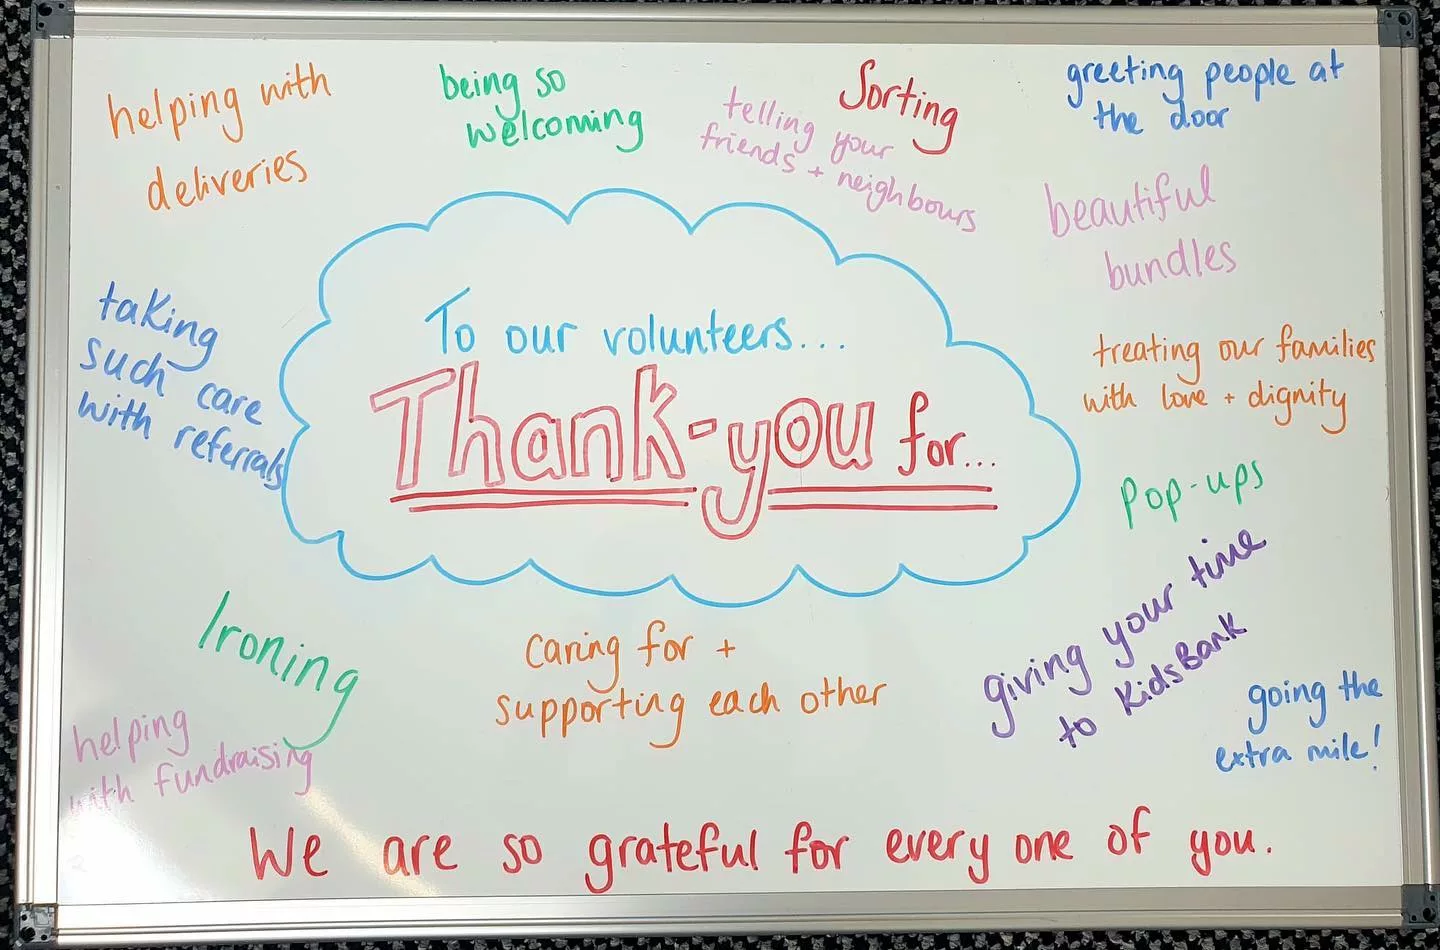 helping with
deliveries
being so
welcoming
telling your
friends + neighbours
Sorting
greeting people at
the door
beautiful
bundles
taking
such care
with referrals
To our volunteers...
Thank-you for...
treating our families
with love + dignity
Pop-ups
giving your time
to KidsBank
Ironing
caring for +
supporting each other
going the
extra mile!
helping
with fundraising
We are so grateful for every one of you.